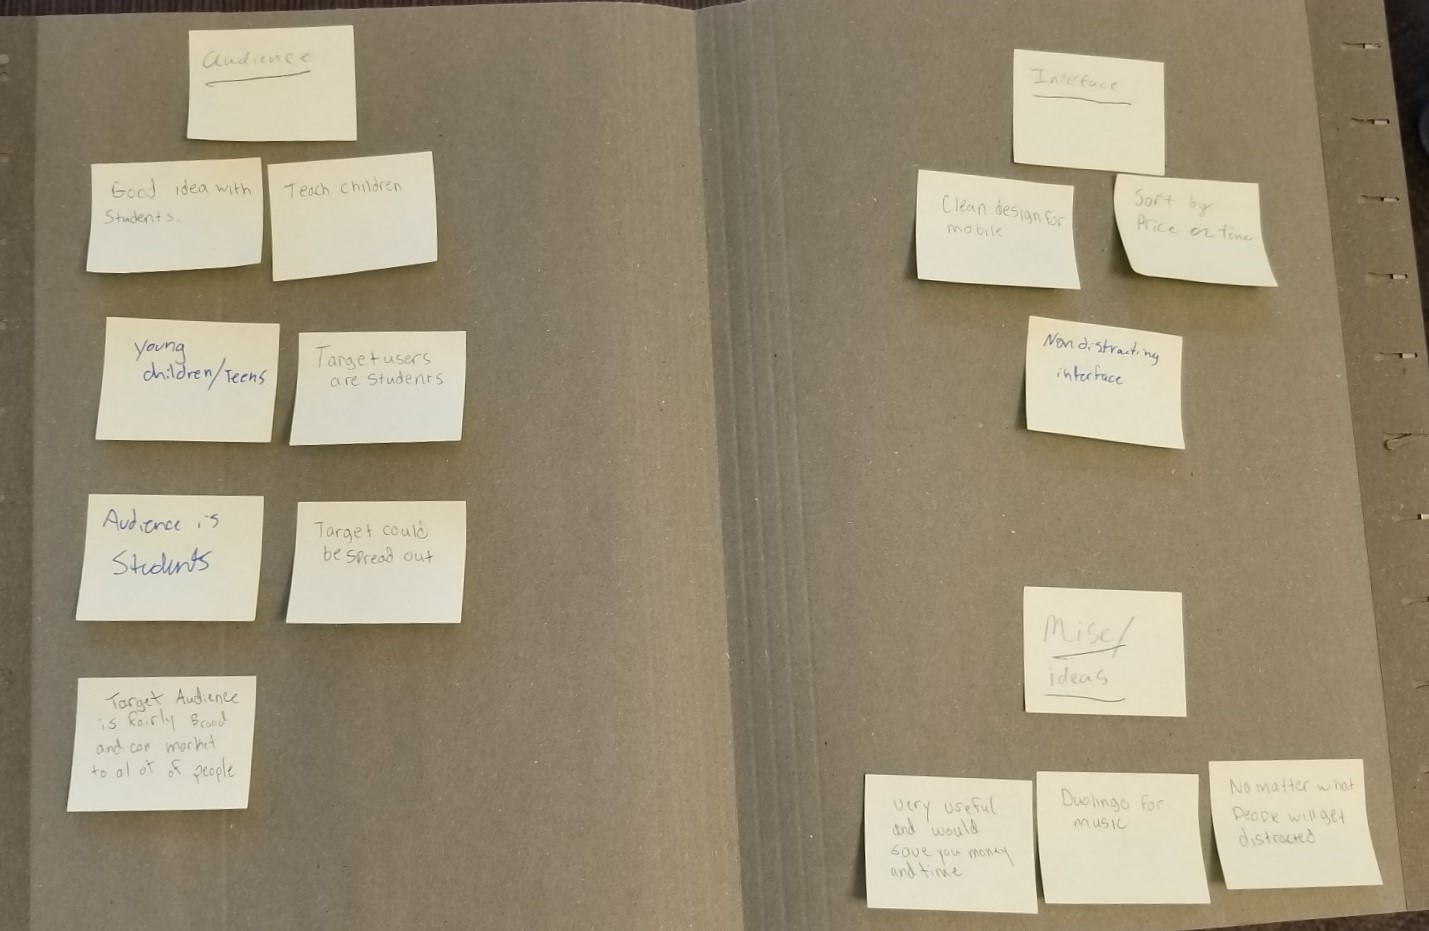 Audience
Good idea with
Students.
Teach children
Young
children/Teens
Target users
are students
Audience is
Students
Target could
be spread out
Target Audience
is fairly Broad
and can market
to al ot of people
Interface
Clean design for
mobile
Sort by
Price or time
Non distracting
interface
Misc/
ideas
very useful
and would
save you money
and time
Duolingo for
music
No matter what
People will get
distracted